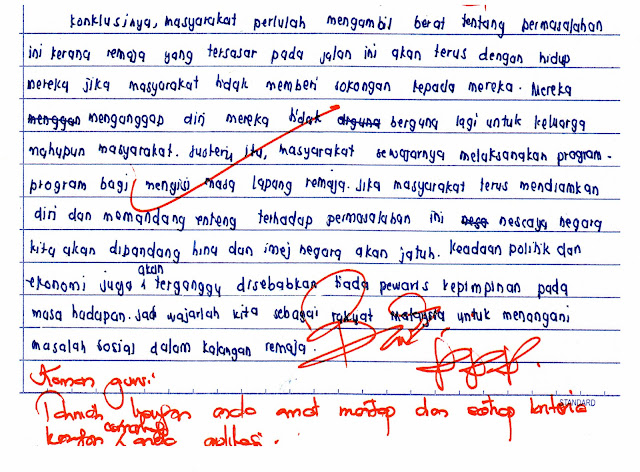 Konklusinya, masyarakat perlulah mengambil berat tentang permasalahan
ini kerana remaja yang tersasar pada jalan ini akan terus dengan hidup
mereka jika masyarakat tidak memberi sokongan kepada mereka. Mereka
menggan menganggap diri mereka tidak diguna berguna lagi untuk keluarga
mahupun masyarakat. Justeru itu, masyarakat sewajarnya melaksanakan program-
program bagi mengisi masa lapang remaja. Jika masyarakat terus mendiamkan
diri dan memandang enteng terhadap permasalahan ini nescaya negara
kita akan dipandang hina dan imej negara akan jatuh. Keadaan politik dan
ekonomi juga akan terganggu disebabkan tiada pewaris kepimpinan pada
masa hadapan. Jadi wajarlah kita sebagai rakyat Malaysia untuk menangani
masalah sosial dalam kalangan remaja.
Komen guru:
Tahniah anda amat mantap dan setiap kriteria
STANDARD
karangan anda aplikasi.